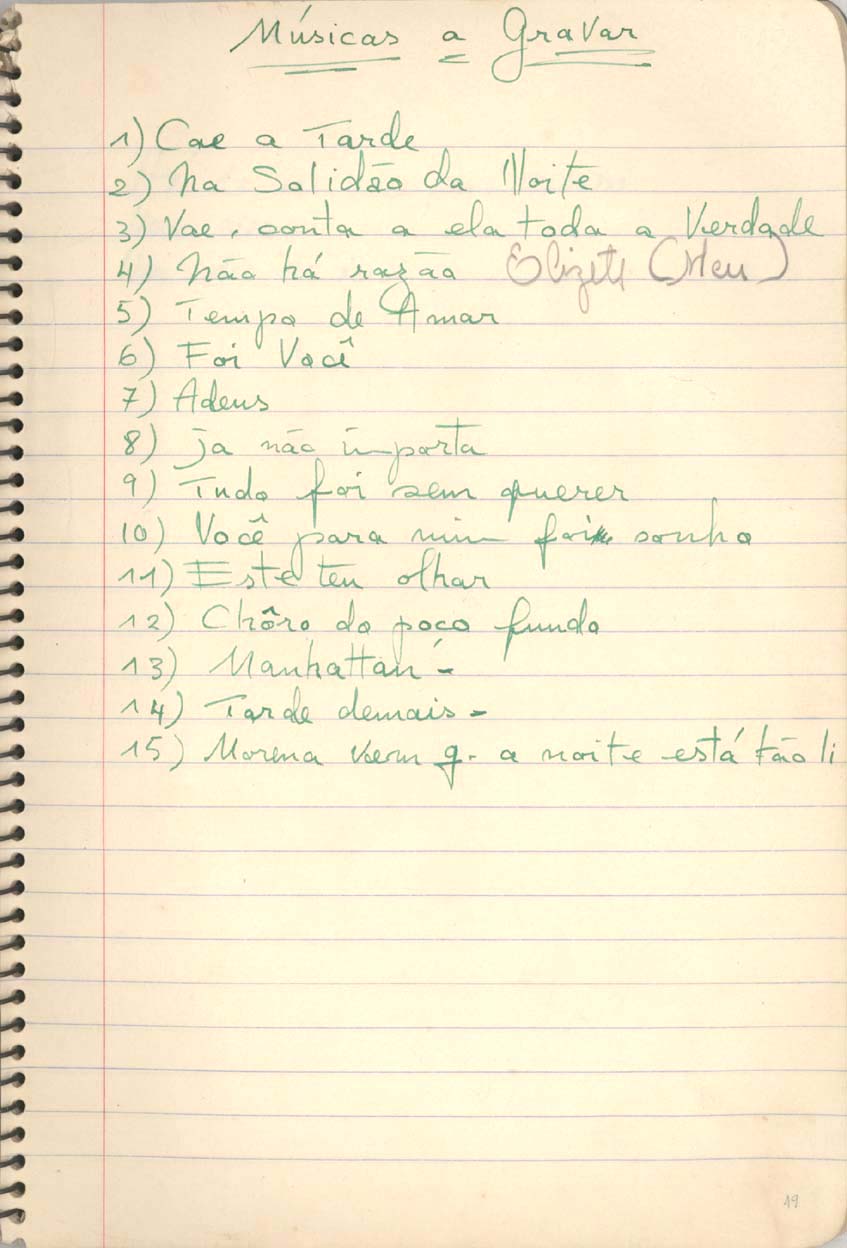 Músicas a Gravar
1) Cae a Tarde
2) Na Solidão da Noite
3) Vae, conta a ela toda a Verdade
4) Não há razão Elizete (Meu)
5) Tempo de Amar
6) Foi Você
7) Adeus
8) ja não importa
9) Tudo foi sem querer
10) Você para mim foi sonho
11) Este teu olhar
12) Chôro do poço fundo
13) Manhattan -
14) Tarde demais -
15) Morena vem q. a noite está tão li
19